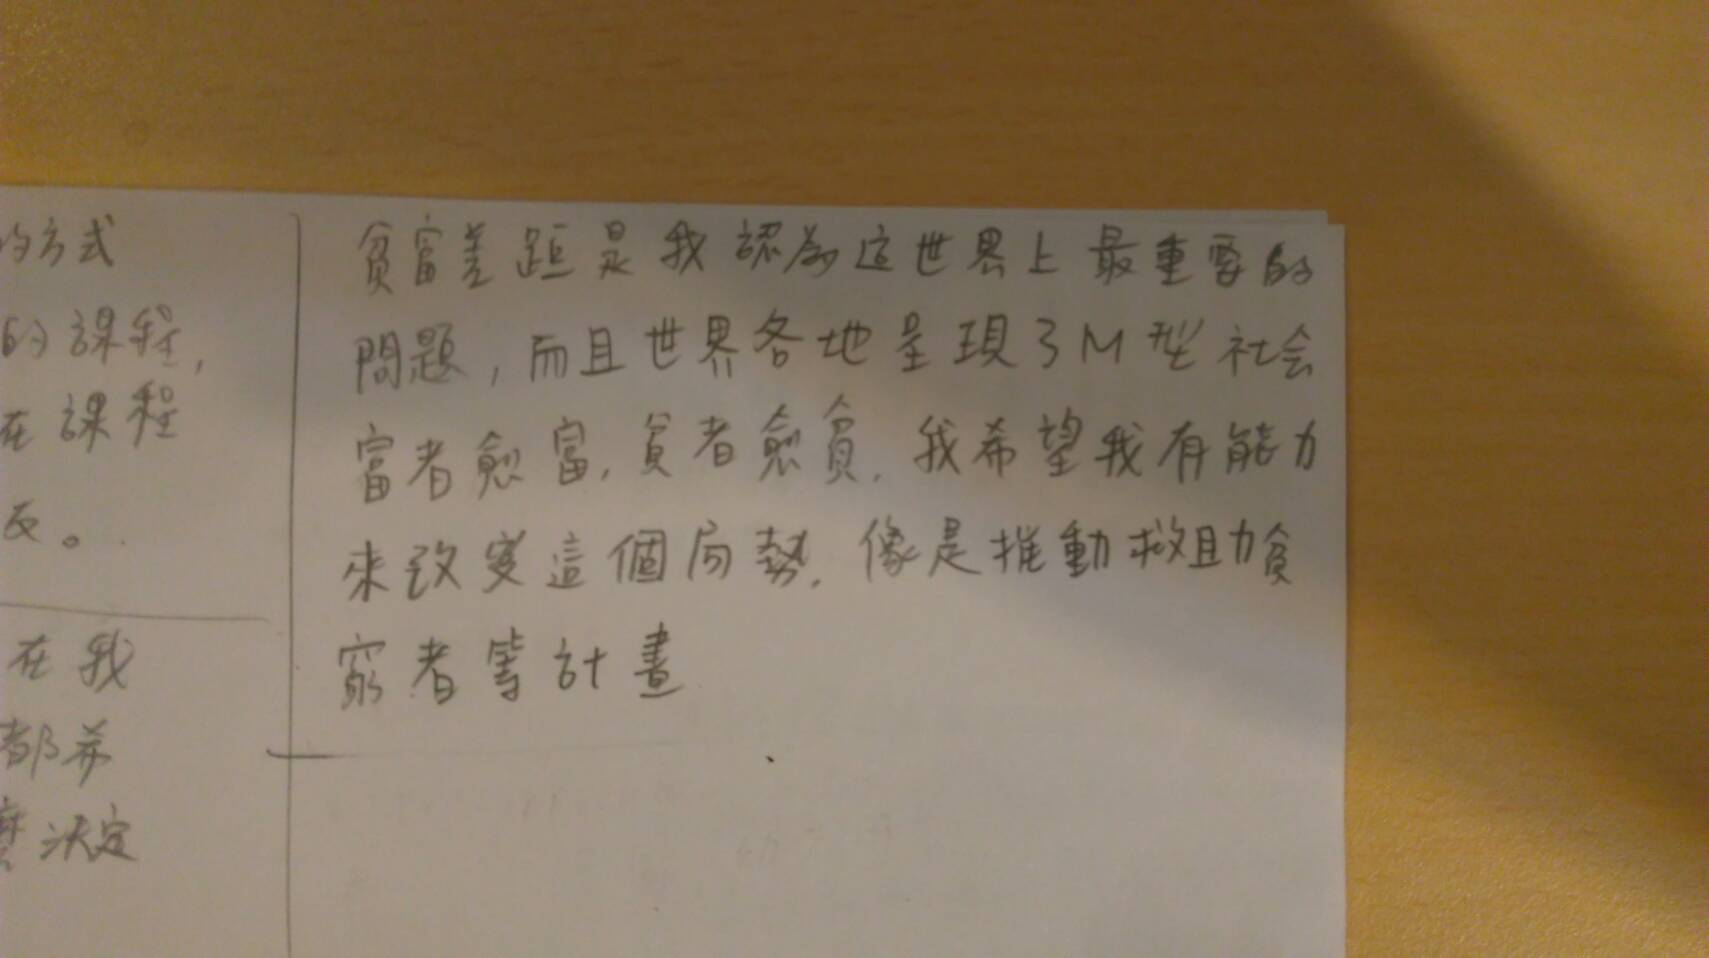 的方式
的課程,
在課程
反。
在我
都希
麼決定
貧富差距是我認為這世界上最重要的
問題,而且世界各地呈現了M型社会
富者愈富,貧者愈貧,我希望我有能力
來改變這個局勢,像是推動救助貧
窮者等計畫